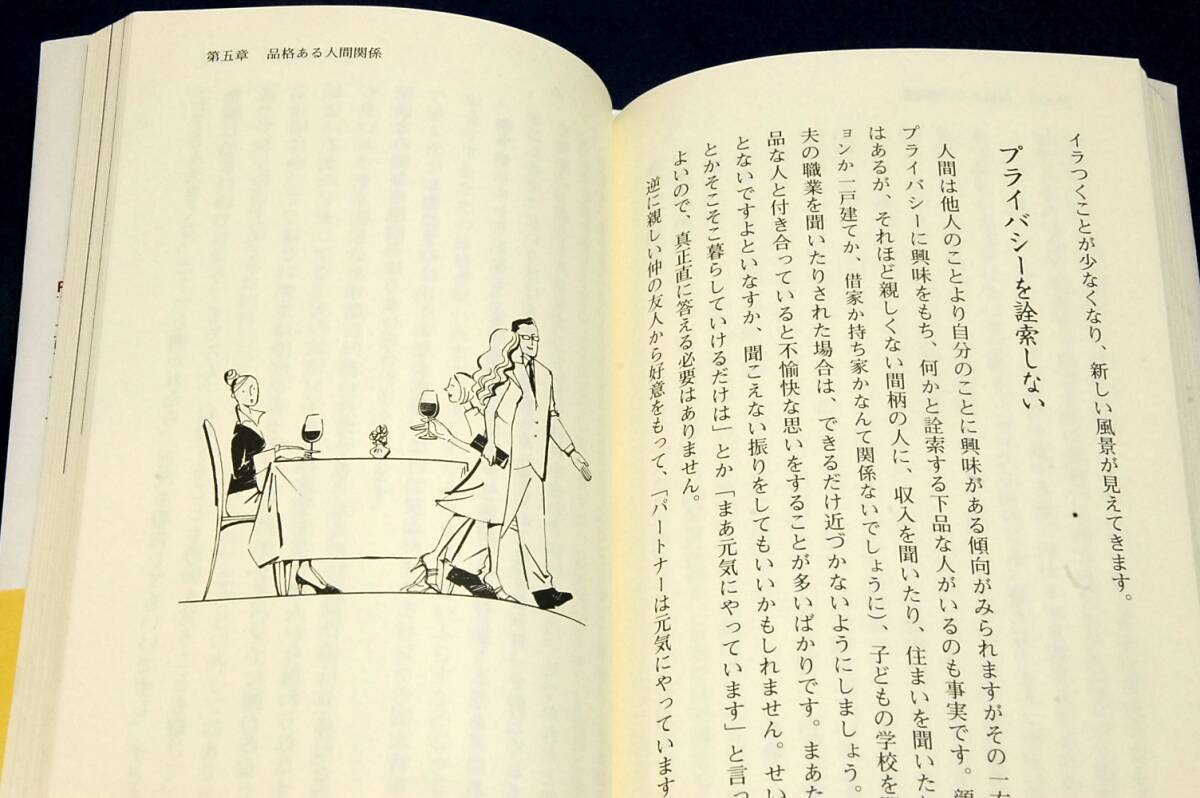 第五章 品格ある人間関係
イラつくことが少なくなり、新しい風景が見えてきます。
プライバシーを詮索しない
人間は他人のことより自分のことに興味がある傾向がみられますがその一方
プライバシーに興味をもち、何かと詮索する下品な人がいるのも事実です。顔
はあるが、それほど親しくない間柄の人に、収入を聞いたり、住まいを聞いた
ョンか一戸建てか、借家か持ち家かなんて関係ないでしょうに)、子どもの学校を
夫の職業を聞いたりされた場合は、できるだけ近づかないようにしましょう。
品な人と付き合っていると不愉快な思いをすることが多いばかりです。まあた
とないですよといなすか、聞こえない振りをしてもいいかもしれません。せい
とかそこそこ暮らしていけるだけは」とか「まあ元気にやっています」と言っ
よいので、真正直に答える必要はありません。
逆に親しい仲の友人から好意をもって、「パートナーは元気にやっています